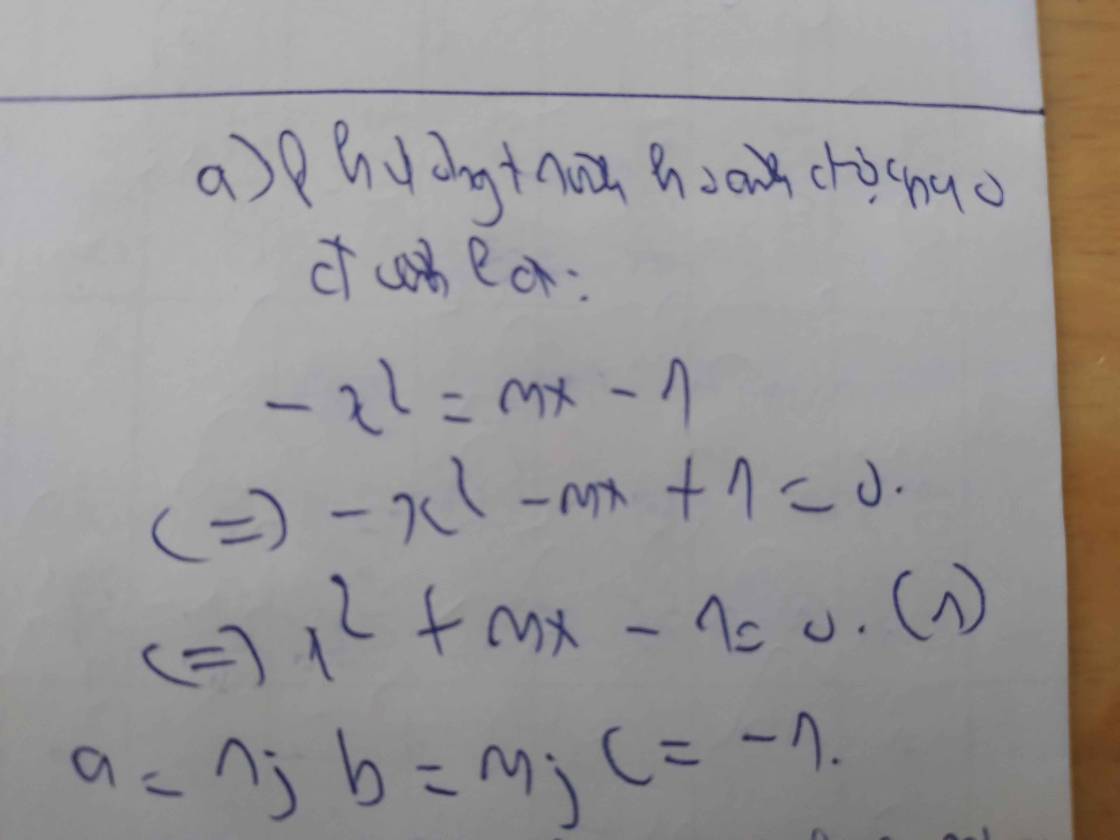 a) Phương trình hoành độ của
định là:
- x² = mx - 1
(=) - x² - mx + 1 = 0.
(=) x² + mx - 1 = 0. (1)
a = 1; b = m; c = -1.